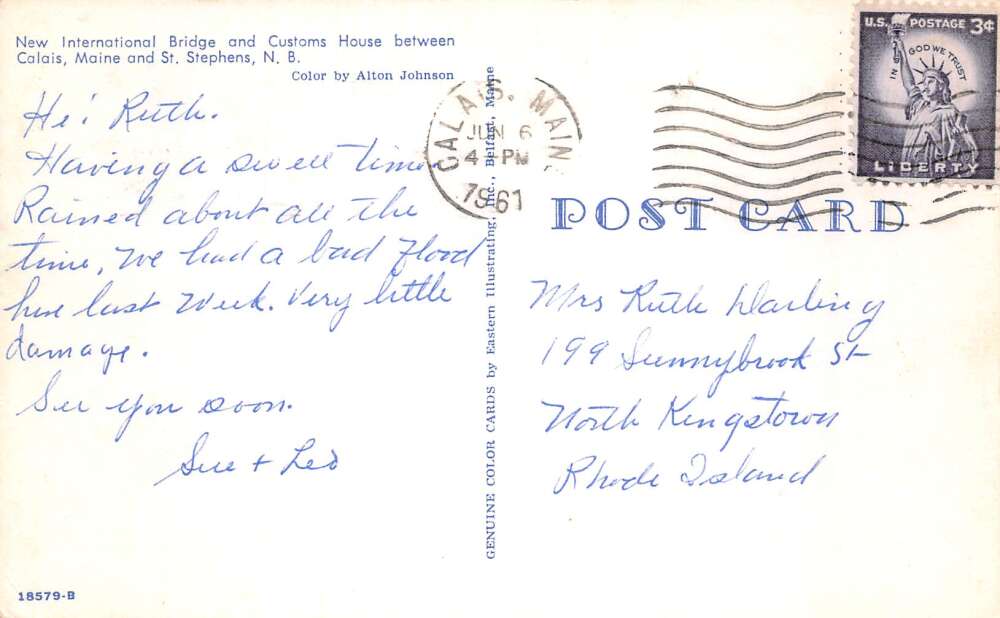 New International Bridge and Customs House between
Calais, Maine and St. Stephens, N. B.
Color by Alton Johnson
Hi! Ruth.
Having a swell time
Rained about all the
time, we had a bad flood
here last week. Very little
damage.
See you soon.
Sue + Leo
18579-B
GENUINE COLOR CARDS by Eastern Illustrating, Inc., Belfast, Maine
CALAIS. MAINE
JUN 6
4 PM
1961
U.S. POSTAGE 3¢
IN GOD WE TRUST
LIBERTY
POST CARD
Mrs Ruth Darling
199 Sunnybrook St
North Kingstown
Rhode Island